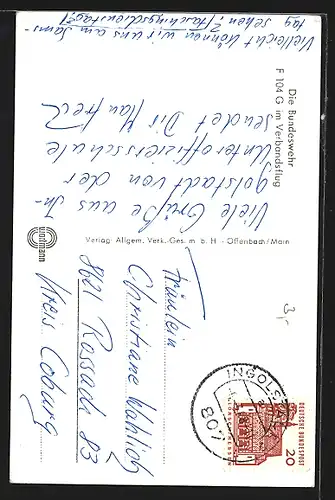 Die Bundeswehr
F 104 G im Verbandsflug
Viele Grüße aus In-
golstadt von der
Unteroffiersschule
sendet Dir Manfred
Vielleicht können wir uns am Sams-
tag sehen,
Verlag: Allgem. Verk.-Ges. m. b. H - Offenbach/Main
Fräulein
Christiane Wahlich
8621 Rossach 83
Kreis Coburg
INGOLST
DEUTSCHE BUNDESPOST
20